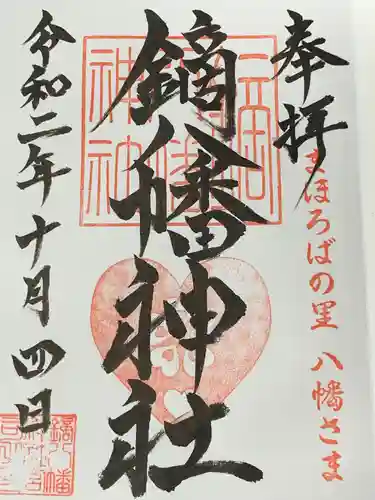 奉拝
まほろばの里 八幡さま
鏑八幡神社
令和二年十月四日
鏑八幡